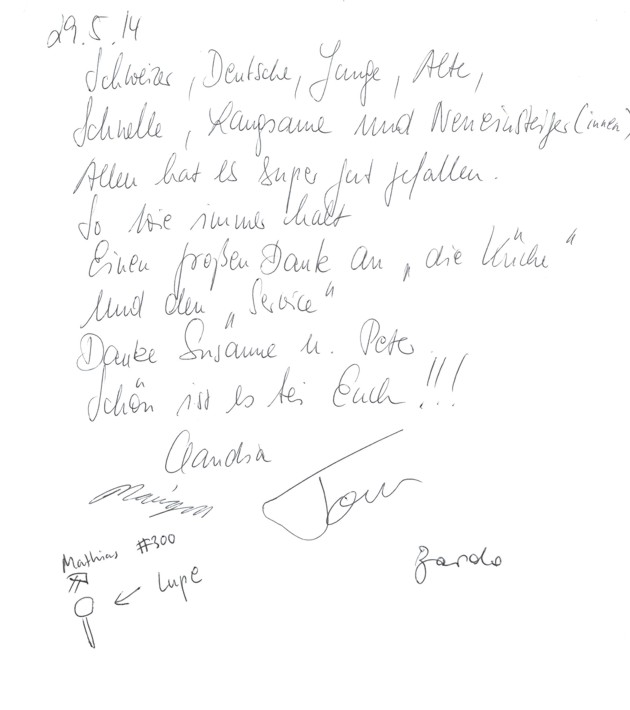 29.5.14
Schweizer, Deutsche, Junge, Alte,
Schnelle, Langsame und Neueinsteiger(innen)
Allen hat es super gut gefallen.
So wie immer halt
Einen großen Dank an „die Küche“
Und den „Service“
Danke Susanne u. Peter
Schön ist es bei Euch!!!
Claudia
Mathias #300
Lupe